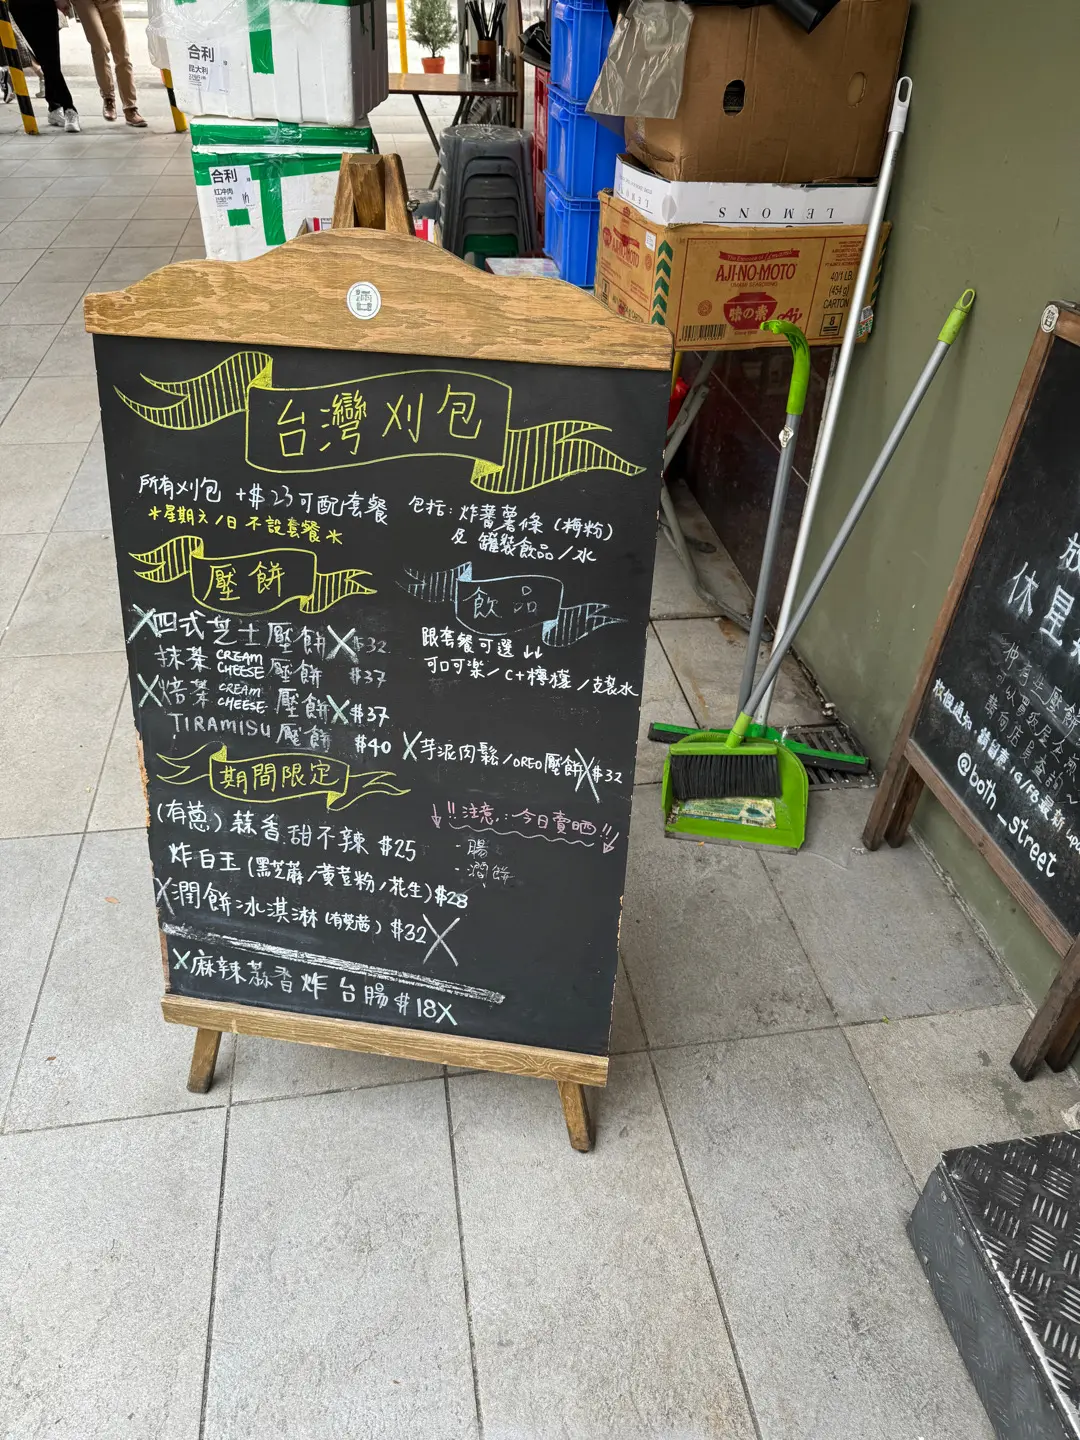 合利
昆大利
合利
红冲肉
LEMONS
AJI-NO-MOTO
味の素
40/1 LB.
(454 g)
CARTON
8
台灣刈包
所有刈包 +$23可配套餐
*星期六/日 不設套餐*
包括: 炸蕃薯條 (梅粉)
及 罐裝飲品/水
壓餅
飲品
X四式芝士壓餅X $32
抹茶 CREAM CHEESE 壓餅 $37
X焙茶 CREAM CHEESE 壓餅X $37
TIRAMISU 壓餅 $40
跟套餐可選 ↓↓
可口可樂/C+檸檬/支裝水
X芋泥肉鬆/OREO壓餅X $32
期間限定
(有蔥) 蒜香甜不辣 $25
炸白玉 (黑芝蔴/黃荳粉/花生) $28
X潤餅冰淇淋 (有芫茜) $32X
X麻辣蒜香炸台腸 $18X
↓!!注意: 今日賣晒!!↓
·腸
·潤餅
休星
放假通知,請留意IG/FB最新
@both_street